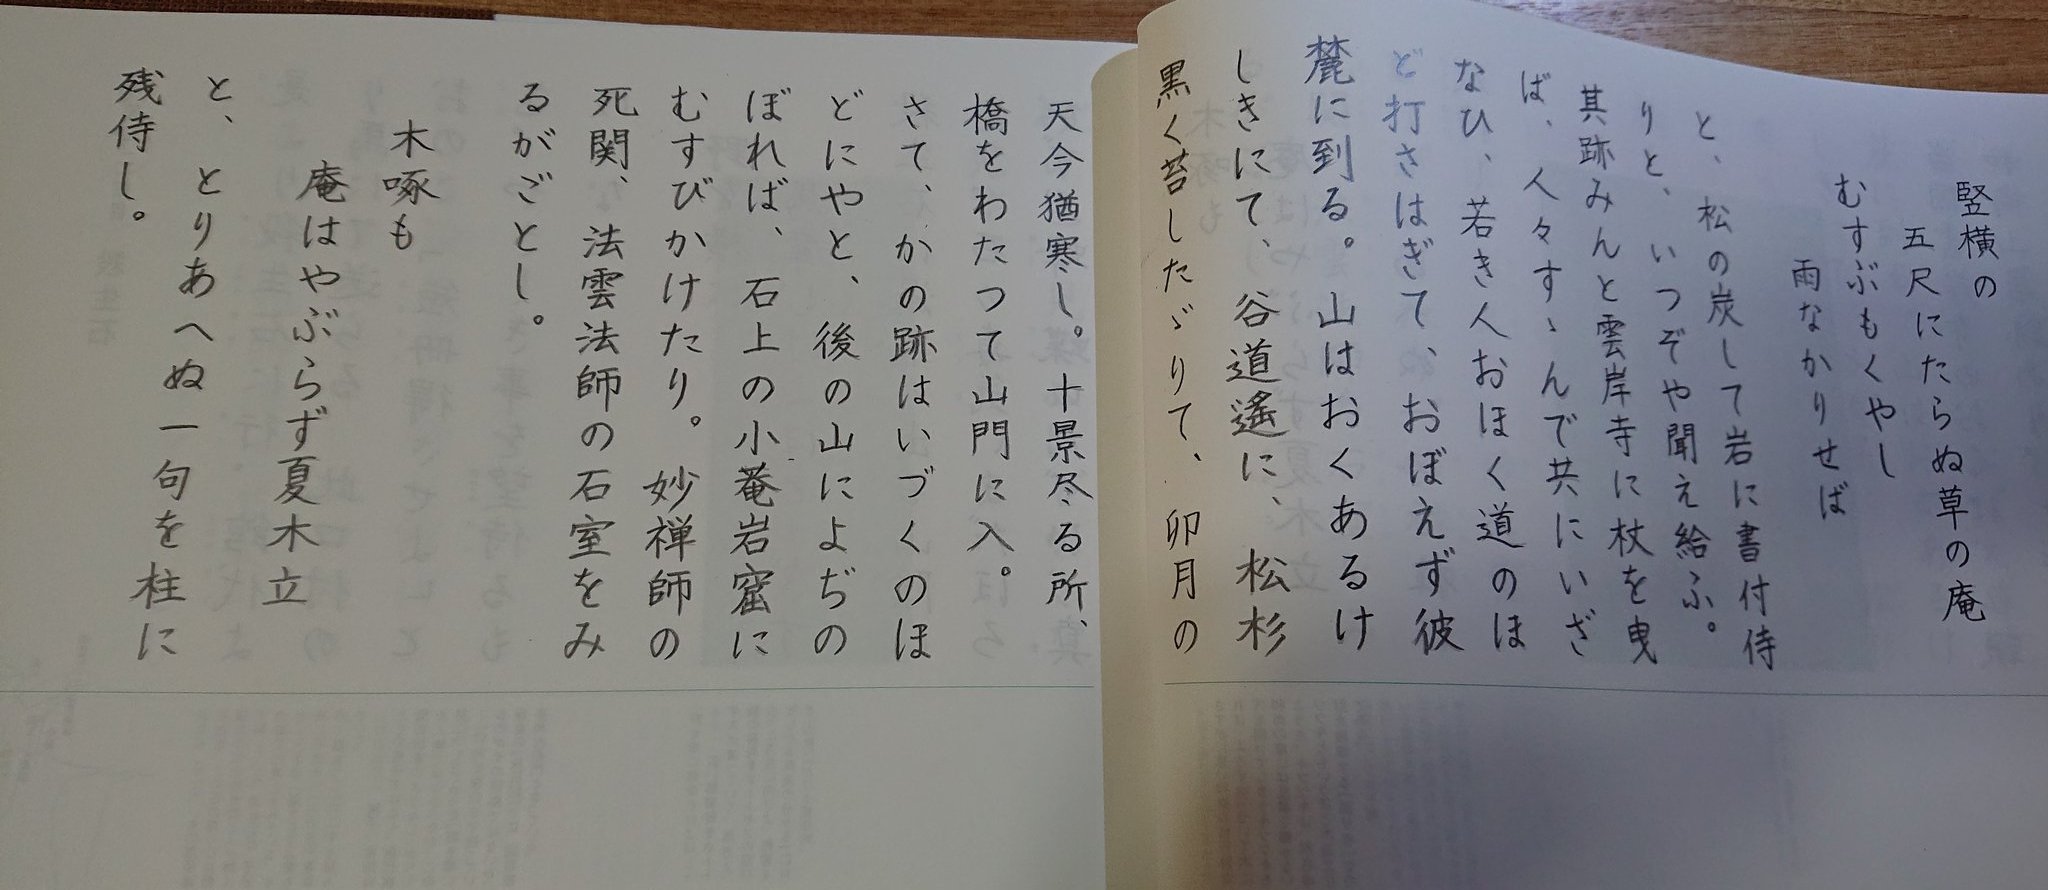 竪横の
五尺にたらぬ草の庵
むすぶもくやし
雨なかりせば
と、松の炭して岩に書付侍
りと、いつぞや聞え給ふ。
其跡みんと雲岸寺に杖を曳
ば、人々すゝんで共にいざ
なひ、若き人おほく道のほ
ど打さはぎて、おぼえず彼
麓に到る。山はおくあるけ
しきにて、谷道遙に、松杉
黒く苔したゞりて、卯月の
天今猶寒し。十景尽る所、
橋をわたつて山門に入。
さて、かの跡はいづくのほ
どにやと、後の山によぢの
ぼれば、石上の小菴岩窟に
むすびかけたり。妙禅師の
死関、法雲法師の石室をみ
るがごとし。
木啄も
庵はやぶらず夏木立
と、とりあへぬ一句を柱に
残侍し。